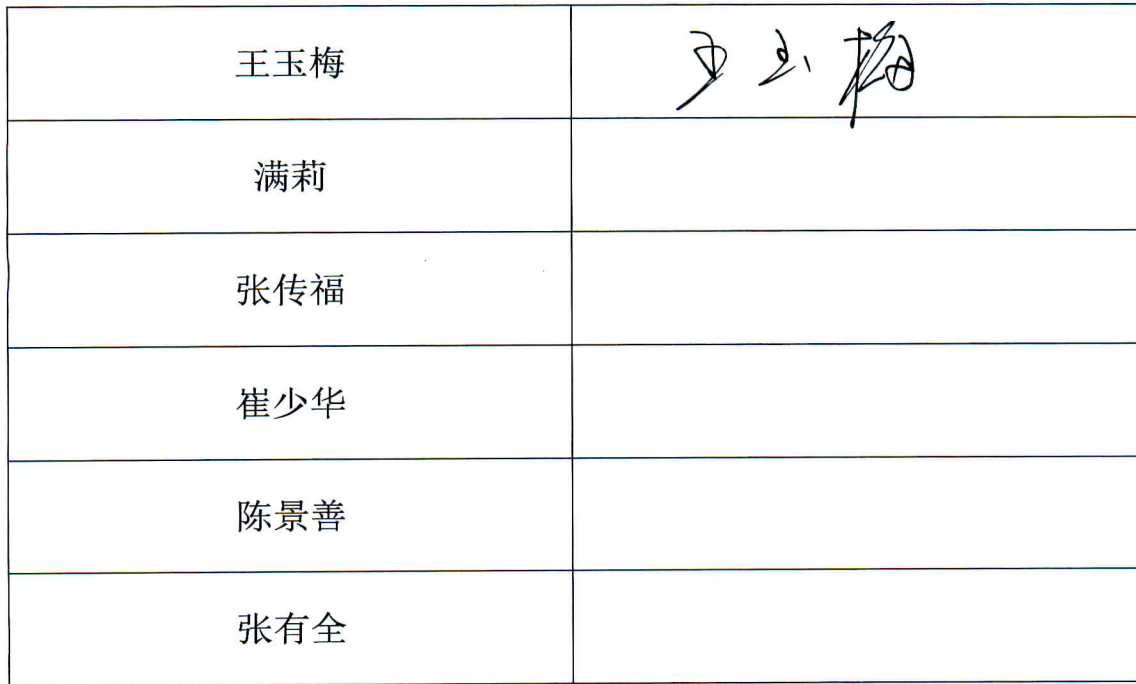 王玉梅 王玉梅
满莉
张传福
崔少华
陈景善
张有全